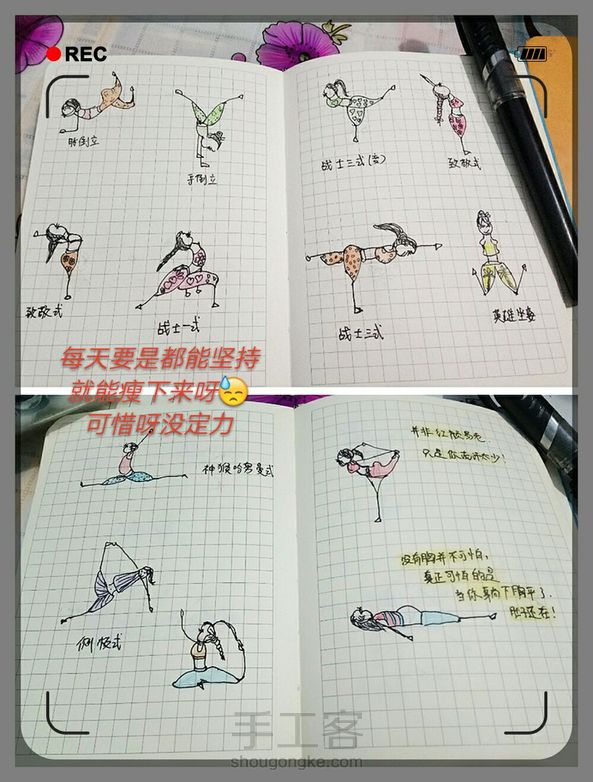 REC
肘倒立
手倒立
战士三式(变)
致敬式
致敬式
战士一式
战士三式
英雄坐姿
每天要是都能坚持
就能瘦下来呀
可惜呀没定力
神猴哈努曼式
并非红颜易老
只是你站得太少!
侧板式
没有胸并不可怕,
真正可怕的是
当你躺下胸平了,
肚子还在!
手工客
shougongke.com